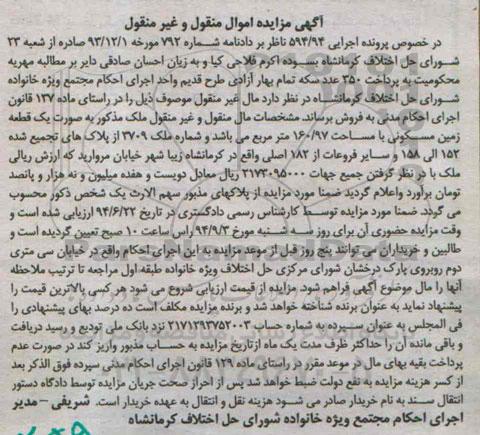 آگهی مزایده اموال منقول و غیر منقول
در خصوص پرونده اجرایی ۵۹۴/۹۴ ناظر بر دادنامه شماره ۷۹۲ مورخه ۹۳/۱۲/۱ صادره از شعبه ۲۳
شورای حل اختلاف کرمانشاه بسوده اکرم فلاحی کیا و به زیان احسان صادقی دایر بر مطالبه مهریه
محکومیت به پرداخت ۳۵۰ عدد سکه تمام بهار آزادی طرح قدیم واحد اجرای احکام مجتمع ویژه خانواده
شورای حل اختلاف کرمانشاه در نظر دارد مال غیر منقول موصوف ذیل را در راستای ماده ۱۳۷ قانون
اجرای احکام مدنی به فروش برساند. مشخصات مال منقول و غیر منقول ملک مذکور به صورت یک قطعه
زمین مسکونی با مساحت ۱۶۰/۹۷ متر مربع می باشد و شماره ملک ۳۷۰۹ از پلاک های تجمیع شده
۱۵۲ الی ۱۵۸ و سایر فروعات از ۱۸۲ اصلی واقع در کرمانشاه زیبا شهر خیابان مروارید که ارزش ریالی
ملک با در نظر گرفتن جمیع جهات ۲۱۷۳۰۹۵۰۰۰ ریال معادل دویست و هفده میلیون و نه هزار و پانصد
تومان برآورد واعلام گردید ضمنا مورد مزایده از پلاکهای مذبور سهم الارث یک شخص ذکور محسوب
می گردد. ضمنا مورد مزایده توسط کارشناس رسمی دادگستری در تاریخ ۹۴/۶/۲۲ ارزیابی شده است و
وقت مزایده حضوری آن برای روز سه شنبه مورخ ۹۴/۹/۳ راس ساعت ۱۰ صبح تعیین گردیده است و
طالبین و خریداران می توانند پنج روز قبل از موعد مزایده به این اجرای احکام واقع در خیابان سی متری
دوم روبروی پارک درخشان شورای مرکزی حل اختلاف ویژه خانواده طبقه اول مراجعه تا ترتیب ملاحظه
آنها را مال موضوع آگهی فراهم شود. مزایده از قیمت ارزیابی شروع می شود هر کسی بالاترین قیمت را
پیشنهاد نماید به عنوان برنده شناخته خواهد شد و برنده مزایده مکلف است ده درصد بهای پیشنهادی را
فی المجلس به عنوان سپرده به شماره حساب ۲۱۷۱۲۹۳۷۵۲۰۰۳ نزد بانک ملی تودیع و رسید دریافت
و باقی مانده آن را حداکثر ظرف مدت یک ماه ازتاریخ مزایده به حساب مذبور واریز کند در صورت عدم
پرداخت بقیه بهای مال در موعد مقرر در راستای ماده ۱۲۹ قانون اجرای احکام مدنی سپرده فوق الذکر بعد
از کسر هزینه مزایده به نفع دولت ضبط خواهد شد پس از احراز صحت جریان مزایده توسط دادگاه دستور
انتقال سند به نام خریدار صادر می شود هزینه نقل و انتقال به عهده خریدار است. شریفی - مدیر
اجرای احکام مجتمع ویژه خانواده شورای حل اختلاف کرمانشاه